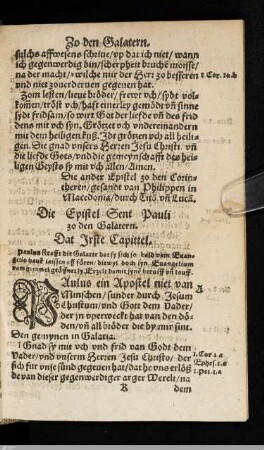 Zo den Galatern.
sulchs affwesens schrive/vp dat ich niet/wann
ich gegenwerdig bin/scherpheit bruche moisse/
na der macht/wilche mir der Herr zo besseren
vnd niet zo verderuen gegeuen hat.
2 Cor. 10.b
Zom lesten/lieue bröder/frewt vch/sydt vol-
komen/tröst vch/hafft einerley gemöde vñ sinne
sydt fridsam/so wirt Got der liefde vñ des frid
dens mit vch syn. Grötzet vch vndereinandern
mit dem heiligen kuß. Jdt grötzen vch all heili-
gen. Die gnad vnsers Herren Jesu Christi. vñ
die liefde Gots/vnd die gemeynschafft des hei-
ligen Geysts sy mit vch allen Amen.
Die ander Epistel zo den Corin-
theren/gesandt van Philippen in
Macedonia/durch Titũ vñ Lucã.
Die Epistel Sent Pauli
zo den Galatern.
Dat Irste Capittel.
Paulus strafft die Galater dat sy sich so bald vam Euan-
gelio haut laissen
Paulus ein Apostel niet van
Minschen/sunder durch Jesum
Christum/vnd Got dem Vader/
der jn vperweckt hat van den dö-
den/vñ all bröder die by mir sint.
A
Den gemynen in Galatia.
Gnad sy mit vch vnd frid van Godt dem
Vader/vnd vnserm Herren Jesu Christo/der
sich fur vnse sünd gegeuen hat/dat he vns erlöß
de van dieser gegenwerdiger arger Werelt/na
1. Cor. 1.a
Ephes. 1.a
1. Pet. 1.a
K
dem